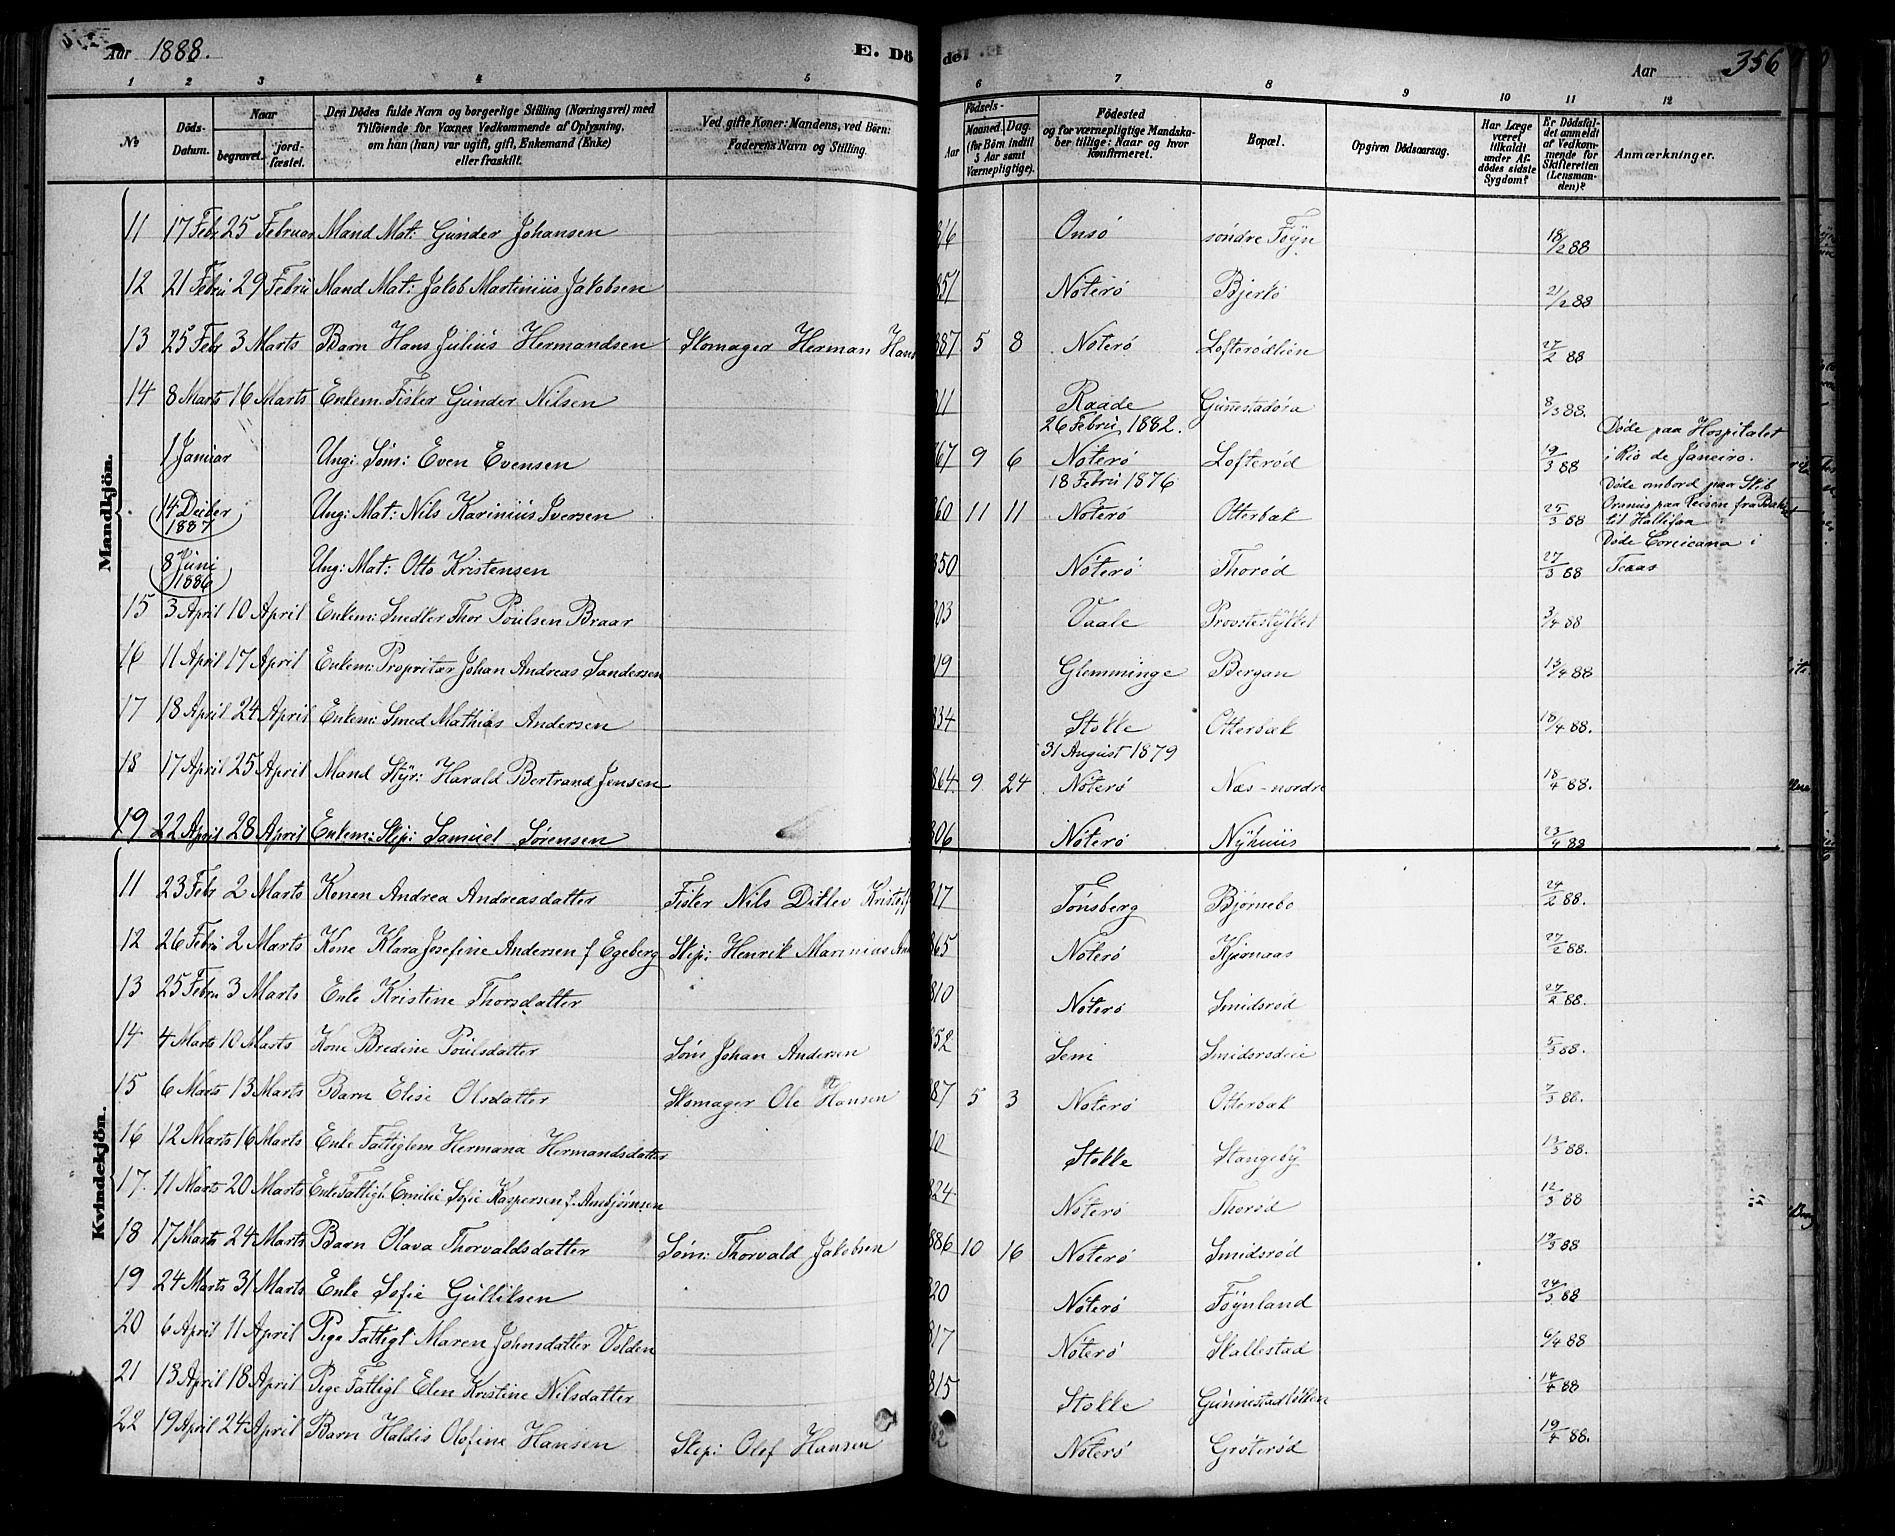 Aar 1888.
E. Dö
del
Aar
356
1 2 3 4 5 6 7 8 9 10 11 12
No
Döds-Datum.
Naar
begravet.
jord-fæstet.
Den Dödes fulde Navn og borgerlige Stilling (Næringsvei) med
Tilföiende for Voxnes Vedkommende af Oplysning,
om han (hun) var ugift, gift, Enkemand (Enke)
eller fraskilt.
Ved gifte Koner: Mandens, ved Börn:
Faderens Navn og Stilling.
Födsels-
Aar
Maaned. Dag.
(for Börn indtil
5 Aar samt
Værnepligtige).
Födested
og for værnepligtige Mandska-
ber tillige: Naar og hvor
konfirmeret.
Bopæl.
Opgiven Dödsaarsag.
Har Læge
været
tilkaldt
under Af-
dödes sidste
Sygdom?
Er Dödsfal-
det anmeldt
af Vedkom-
mende for
Skifteretten
(Lensman-
den)?
Anmærkninger.
Mandkjön.
11 17 Febr 25 Februar Mand Mat: Gunder Johansen Onsö söndre Föyn 18/2 88
12 21 Febru 29 Febru Mand Mat: Jakob Martinius Jakobsen 851 Nöterö Bjerkö 21/2 88
13 25 Febr 3 Marts Barn Hans Julius Hermandsen Skomager Herman Hans 887 5 8 Nöterö Lofterödlien 27/2 88
14 8 Marts 16 Marts Enkem. Fisker Gunder Nilsen 811 Raade Gunestadösa 8/3 88.
26 Febru 1882.
1 Januar Ung: Söm: Even Evensen 867 9 6 Nöterö Lofteröd 19/3 88 Döde paa Hospitalet
i Rio de Janeiro.
18 Febru 1876
14 Decber 1887 Ung: Mat: Nils Karinius Iversen 860 11 11 Nöterö Otterbæk 25/3 88 Döde ombord paa Skib
Oranus paa Reisen fra
til Hallifax
8 Juni 1886 Ung: Mat: Otto Kristensen 850 Nöterö Thoröd 27/3 88 Döde Corcicana i
Texas
15 3 April 10 April Enkem: Snedker Thor Poulsen Braar 803 Vaale Provstestykket 3/4 88
16 11 April 17 April Enkem: Propritær Johan Andreas Sandersen 819 Glemminge Bergan 13/4 88
17 18 April 24 April Enkem: Smed Mathias Andersen 834 Stokke Otterbæk 18/4 88.
31 August 1879
18 17 April 25 April Mand Styr: Harald Bertrand Jensen 864 9 24 Nöterö Næs-nordre 18/4 88.
19 22 April 28 April Enkem: Skip: Samuel Sörensen 806 Nöterö Nyhuus 23/4 88
Kvindekjön.
11 23 Febr 2 Marts Konen Andrea Andreasdatter Fisker Nils Ditlev Kristoff 817 Tönsberg Björnebo 24/2 88.
12 26 Febru 2 Marts Kone Klara Josefine Andersen f Egeberg Skip: Henrik Marinius An 865 Nöterö Kjærnaas 27/2 88.
13 25 Febru 3 Marts Enke Kristine Thorsdatter 810 Nöterö Smidsröd 27/2 88.
14 4 Marts 10 Marts Kone Bredine Poulsdatter Söm Johan Andersen 852 Sem Smidsrödeie 5/3 88.
15 6 Marts 13 Marts Barn Elise Olsdatter Skomager Ole Hansen 887 5 3 Nöterö Otterbæk 7/3 88.
16 12 Marts 16 Marts Enke Fattiglem Hermana Hermandsdatter 810 Stokke Stangeby 13/3 88.
17. 11 Marts 20 Marts Enke Fattigl. Emilie Sofie Kaspersen f. Ambjörnsen 824 Nöterö Thoröd 12/3 88
18 17 Marts 24 Marts Barn Olava Thorvaldsdatter Söm: Thorvald Jakobsen 886 10 16 Nöterö Smidsröd 19/3 88
19 24 Marts 31 Marts Enke Sofie Gulliksen 820 Nöterö Föynland 24/3 88
20 6 April 11 April Pige Fattigl Maren Johnsdatter Volden 817 Nöterö Skallestad 6/4 88
21 13 April 18 April Pige Fattigl Elen Kristine Nilsdatter 815 Stokke Gunnestadkollen 14/4 88
22 19 April 24 April Barn Haldis Olofine Hansen Skip: Olef Hansen Nöterö Gröteröd 19/4 88.